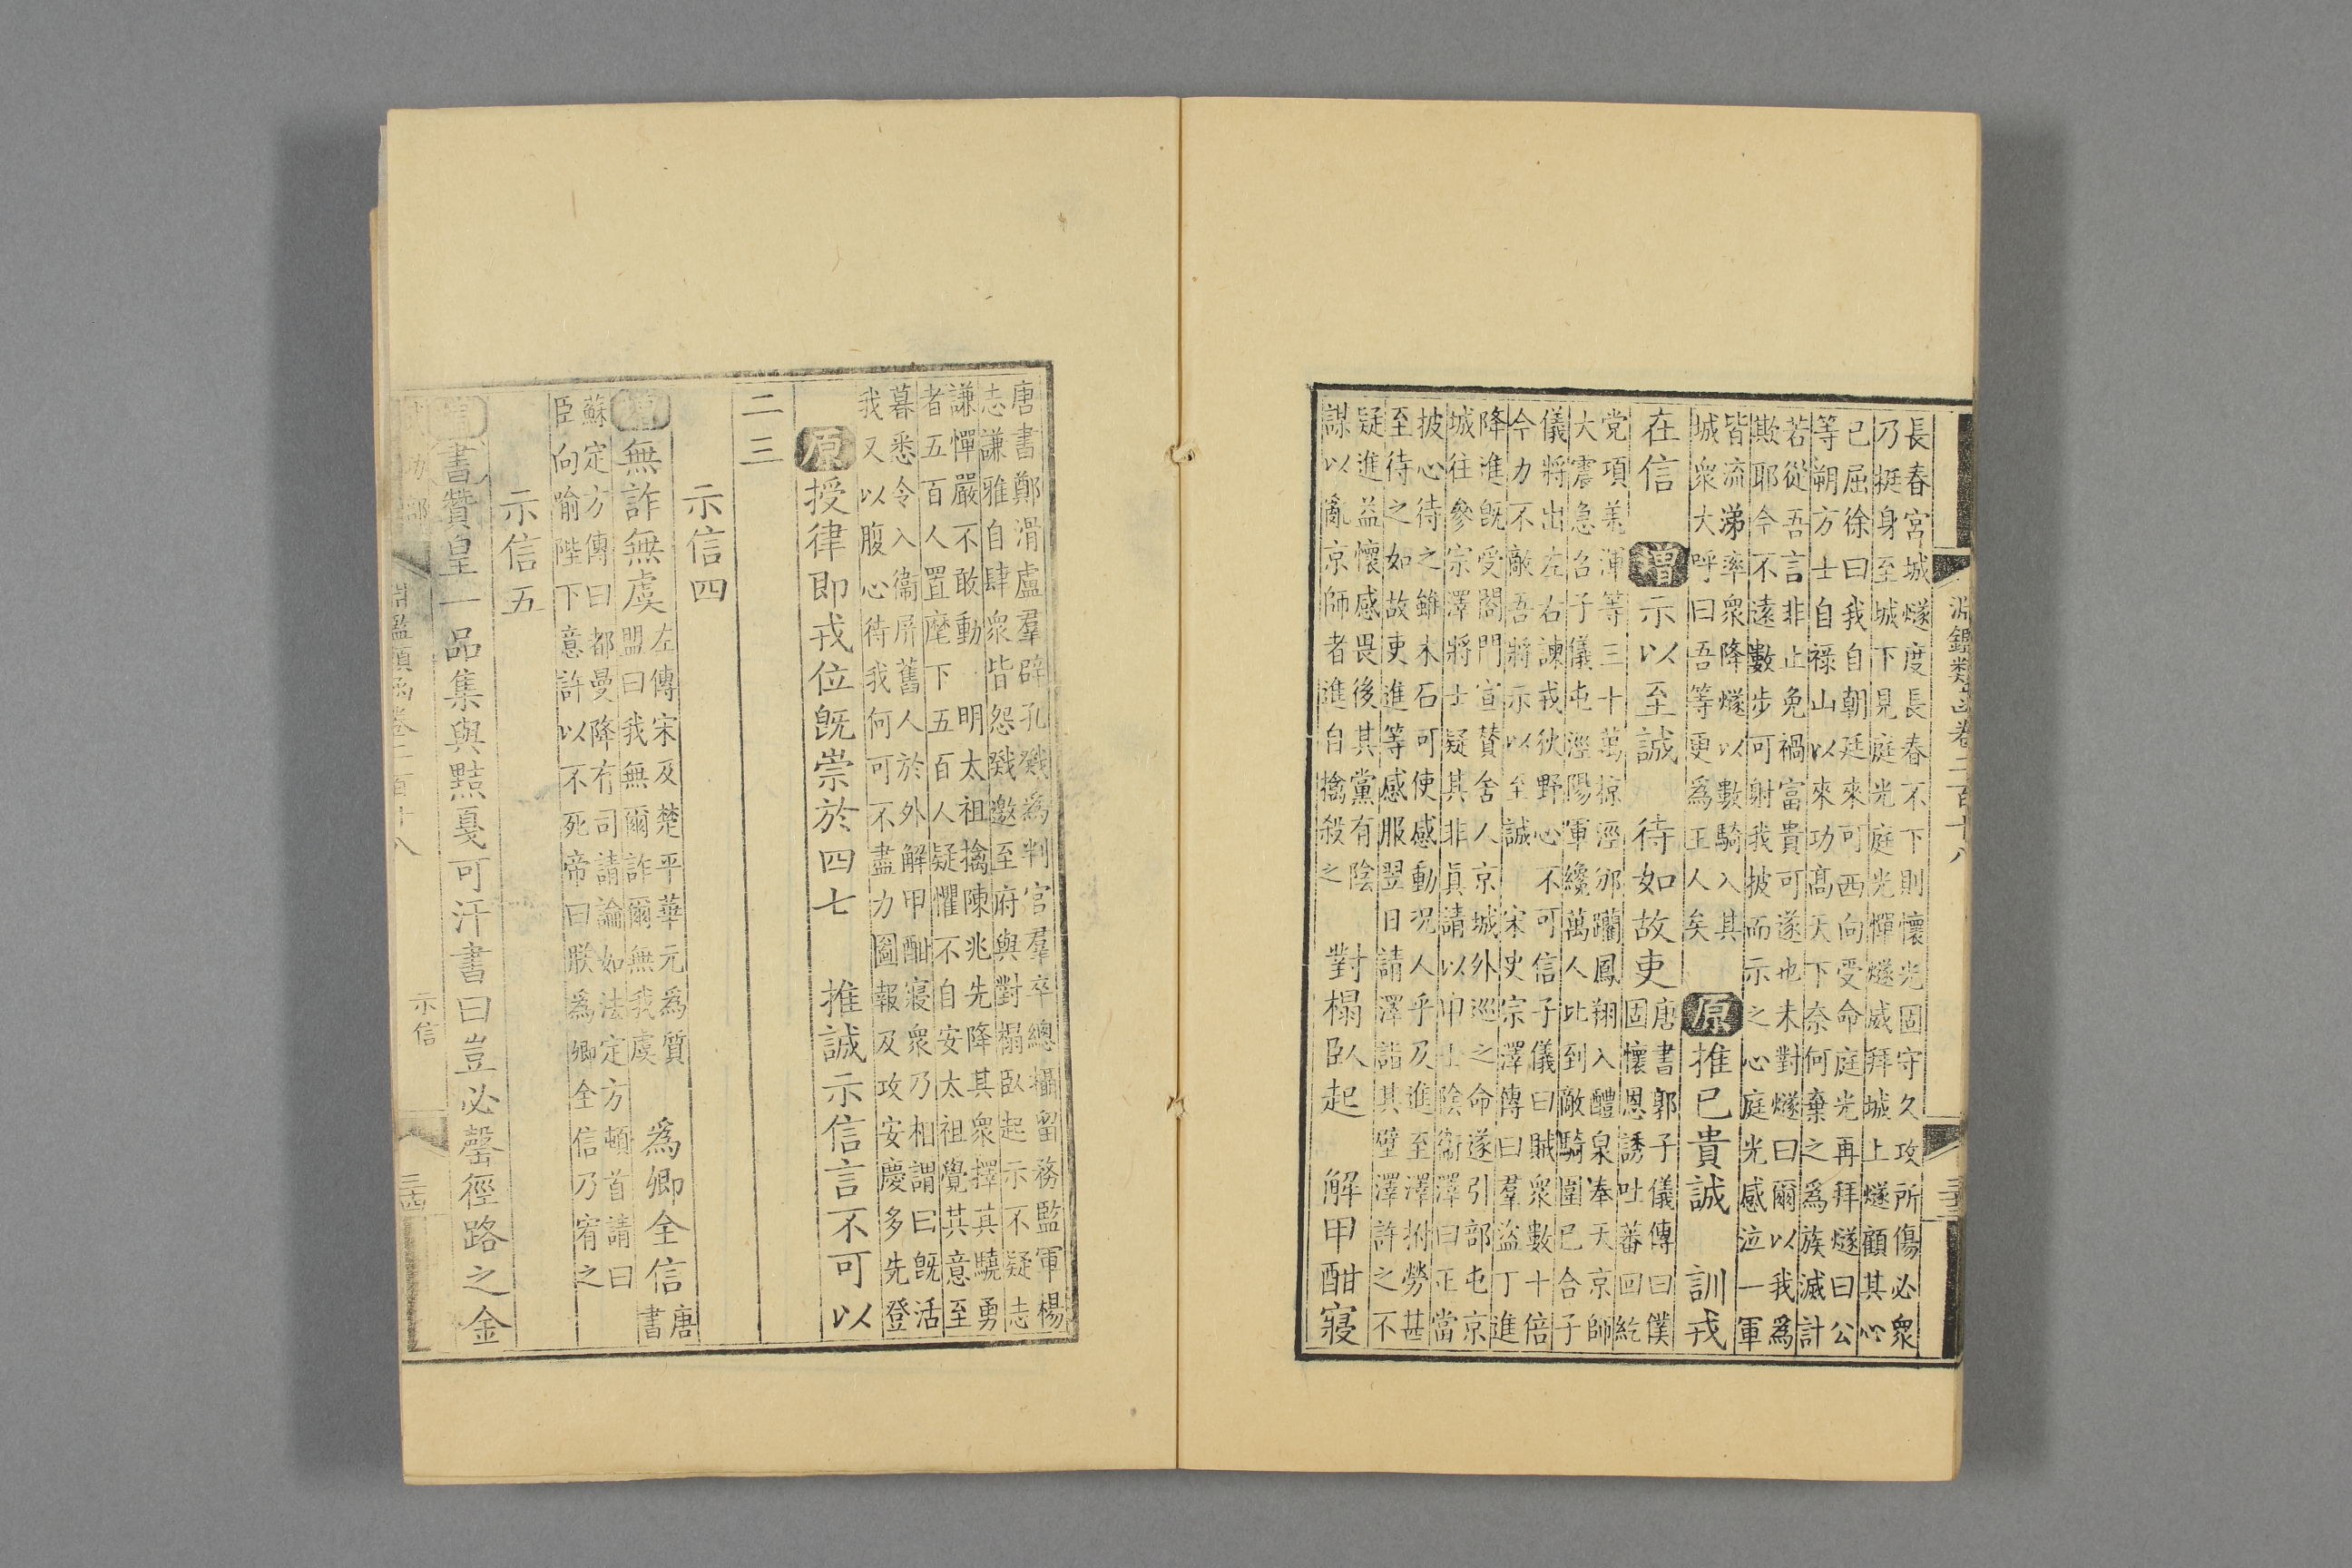 長春宮城燧度長春不下則懷光固守久攻所傷必衆
乃挺身至城下見庭光庭光憚燧威拜城上燧顧其心
已屈徐曰我自朝廷來可西向受命庭光再拜燧曰公
等朔方士自祿山以來功髙天下奈何棄之爲族滅計
若從吾言非止免禍富貴可遂也未對燧曰爾以我爲
欺耶今不遠數步可射我披而示之心庭光感泣一軍
皆流涕率衆降燧以數騎入其
城衆大呼曰吾等更爲王人矣
原推已貴誠　訓戎
在信　增示以至誠　待如故吏
唐書郭子儀傳曰僕
固懷恩誘吐蕃回紇
党項羌渾等三十萬掠涇邠躪鳳翔入醴泉奉天京師
大震急召子儀屯涇陽軍纔萬人比到敵騎圍已合子
儀將出左右諫戎狄野心不可信子儀曰賊衆數十倍
今力不敵吾將示以至誠　宋史宗澤傳曰羣盜丁進
降進既受閤門宣贊舍人京城外巡之命遂引部屯京
城往參宗澤將士疑其非真請以甲士陰衞澤曰正當
披心待之雖木石可使感動况人乎及進至澤拊勞甚
至待之如故吏進等感服翌日請澤詣其壁澤許之不
疑進益懷感畏後其黨有陰
謀以亂京師者進自擒殺之
對榻臥起　解甲酣寢
淵鑑類函卷二百十八
三十三
唐書鄭滑盧羣辟孔戣爲判官羣卒總攝留務監軍楊
志謙雅自肆衆皆怨戣邀至府與對榻臥起示不疑志
謙憚嚴不敢動　明太祖擒陳兆先降其衆擇其驍勇
者五百人置麾下五百人疑懼不自安太祖覺其意至
暮悉令入衞屏舊人於外解甲酣寢衆乃相謂曰既活
我又以腹心待我何可不盡力圖報及攻安慶多先登
原授律即戎位既崇於四七　推誠示信言不可以
二三
示信四
增無詐無虞
左傳宋及楚平華元爲質
盟曰我無爾詐爾無我虞
爲卿全信
唐
書
蘇定方傳曰都曼降有司請論如法定方頓首請曰
臣向喻陛下意許以不死帝曰朕爲卿全信乃宥之
示信五
增書贊皇一品集與黠戛可汗書曰豈必罄徑路之金
淵鑑類函卷二百十八
示信
三十四